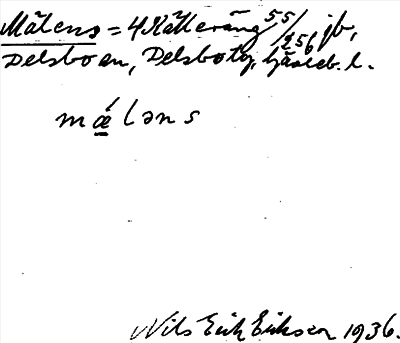 Målens = 4 Källeräng 55/256 jb,
Delsbo sn, Delsbo tg, Gävleb. l.
mǽləns
Nils Erik Eriksson 1936.